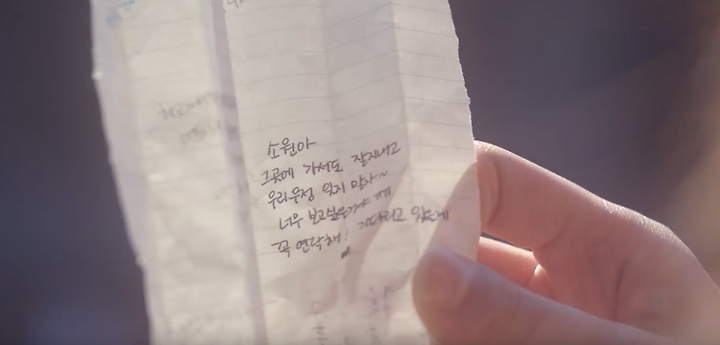 소원아
그곳에 가서도 잘지내고
우리우정 잊지 말자~
너무 보고싶을거야 ㅠㅠ
꼭 연락해! 기다리고 있을게